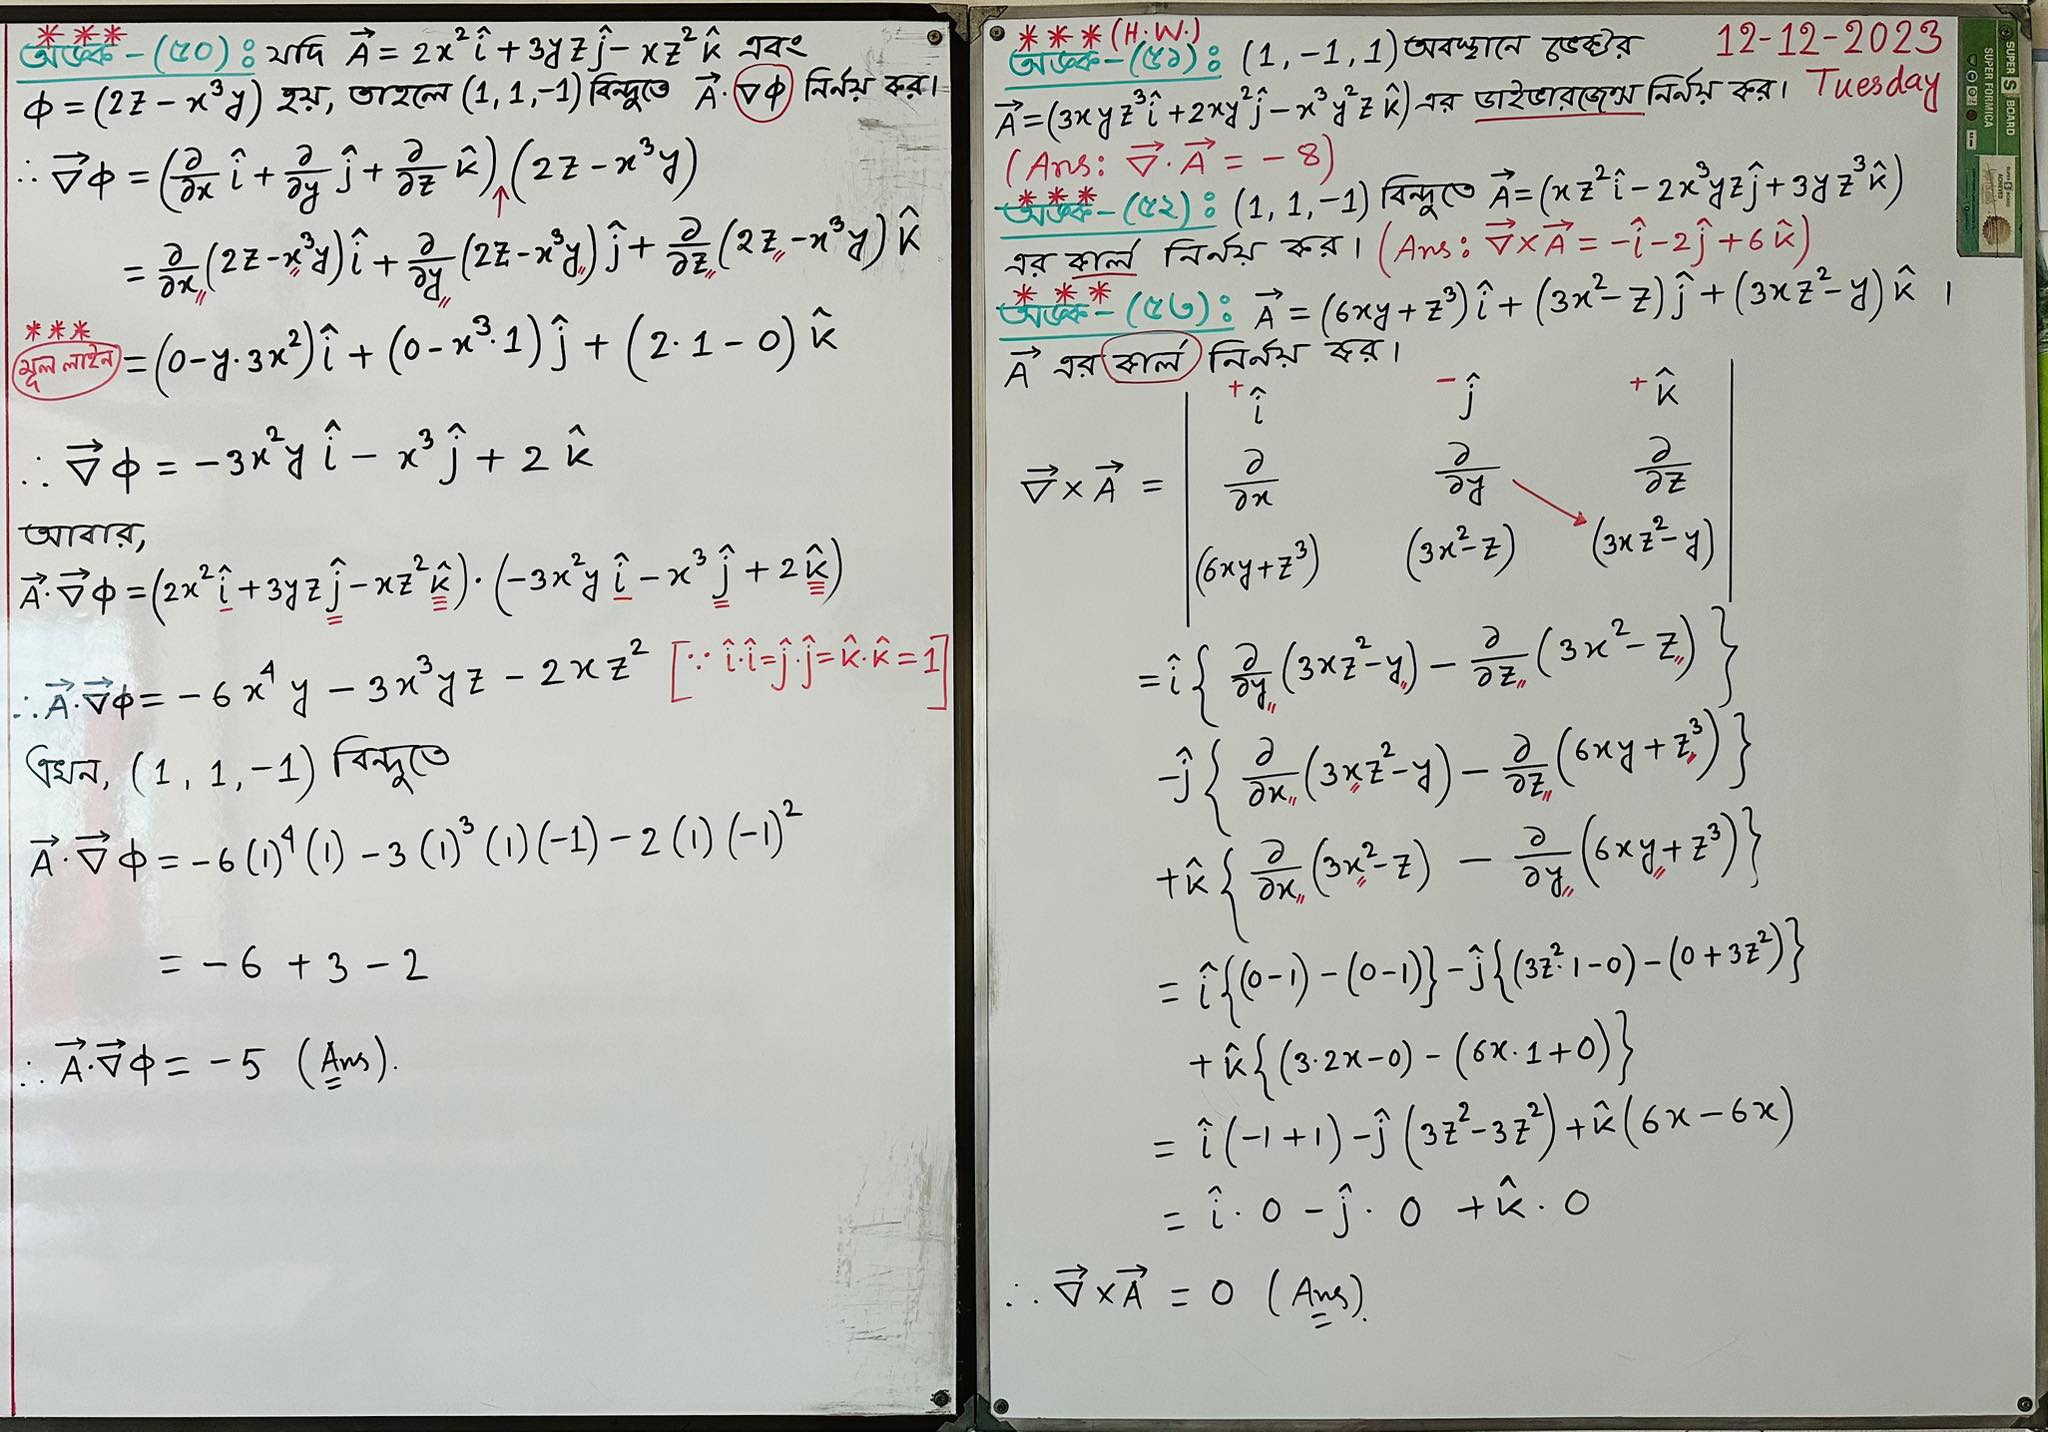 *** অঙ্ক-(৫০): যদি A⃗ = 2x² î + 3yz ĵ - xz² k̂ এবং
φ = (2z - x³y) হয়, তাহলে (1, 1, -1) বিন্দুতে A⃗·∇⃗φ নির্নয় কর।
∴ ∇⃗φ = (∂/∂x î + ∂/∂y ĵ + ∂/∂z k̂) (2z - x³y)
= ∂/∂x (2z - x³y) î + ∂/∂y (2z - x³y) ĵ + ∂/∂z (2z - x³y) k̂
*** মূল লাইন = (0 - y·3x²) î + (0 - x³·1) ĵ + (2·1 - 0) k̂
∴ ∇⃗φ = -3x²y î - x³ ĵ + 2 k̂
আবার,
A⃗·∇⃗φ = (2x² î + 3yz ĵ - xz² k̂) · (-3x²y î - x³ ĵ + 2 k̂)
∴ A⃗·∇⃗φ = -6x⁴y - 3x³yz - 2xz² [∵ î·î = ĵ·ĵ = k̂·k̂ = 1]
এখন, (1, 1, -1) বিন্দুতে
A⃗·∇⃗φ = -6(1)⁴(1) - 3(1)³(1)(-1) - 2(1)(-1)²
= -6 + 3 - 2
∴ A⃗·∇⃗φ = -5 (Ans).
12-12-2023
Tuesday
*** (H.W.)
অঙ্ক-(৫১): (1, -1, 1) অবস্থানে ভেক্টর
A⃗ = (3xyz³ î + 2xy² ĵ - x³y²z k̂) এর ডাইভারজেন্স নির্নয় কর।
(Ans: ∇⃗·A⃗ = -8)
*** অঙ্ক-(৫২): (1, 1, -1) বিন্দুতে A⃗ = (xz² î - 2x³yz ĵ + 3yz³ k̂)
এর কার্ল নির্নয় কর। (Ans: ∇⃗×A⃗ = -î - 2ĵ + 6k̂)
*** অঙ্ক-(৫৩): A⃗ = (6xy + z³) î + (3x² - z) ĵ + (3xz² - y) k̂ ।
A⃗ এর কার্ল নির্নয় কর।
+ î - ĵ + k̂
∇⃗×A⃗ = | ∂/∂x ∂/∂y ∂/∂z |
(6xy + z³) (3x² - z) (3xz² - y)
= î { ∂/∂y (3xz² - y) - ∂/∂z (3x² - z) }
- ĵ { ∂/∂x (3xz² - y) - ∂/∂z (6xy + z³) }
+ k̂ { ∂/∂x (3x² - z) - ∂/∂y (6xy + z³) }
= î {(0-1) - (0-1)} - ĵ {(3z²·1 - 0) - (0 + 3z²)}
+ k̂ {(3·2x - 0) - (6x·1 + 0)}
= î (-1 + 1) - ĵ (3z² - 3z²) + k̂ (6x - 6x)
= î · 0 - ĵ · 0 + k̂ · 0
∴ ∇⃗×A⃗ = 0 (Ans).
SUPER S BOARD
SUPER FORMICA